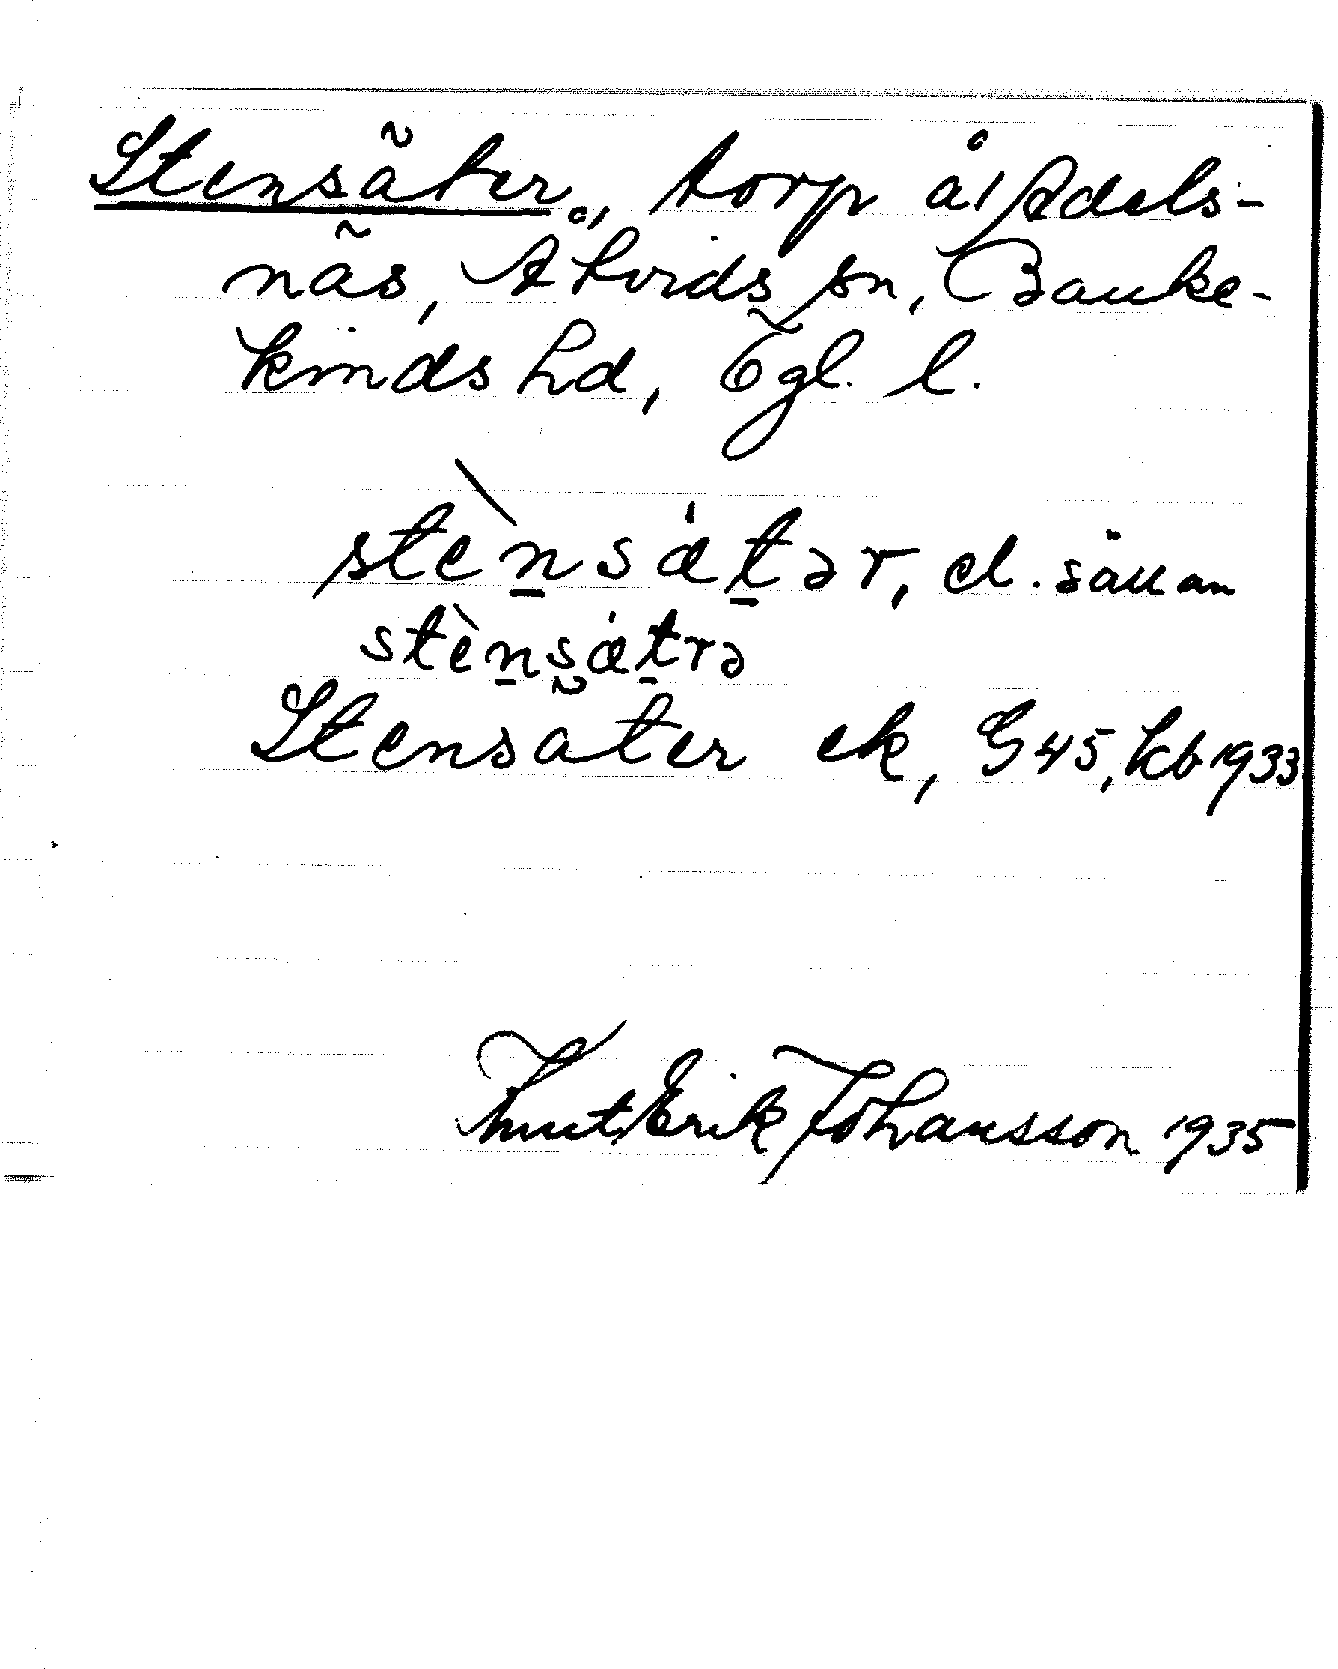 Stensäter, torp å Adels-
näs, Åtvids sn, Banke-
kinds hd, Ögl. l.
stèn̠sǽt̠ər, el. sällan
stèn̠sǽt̠rə
Stensäter ek, G 45, kb 1933
Knut Erik Johansson 1935